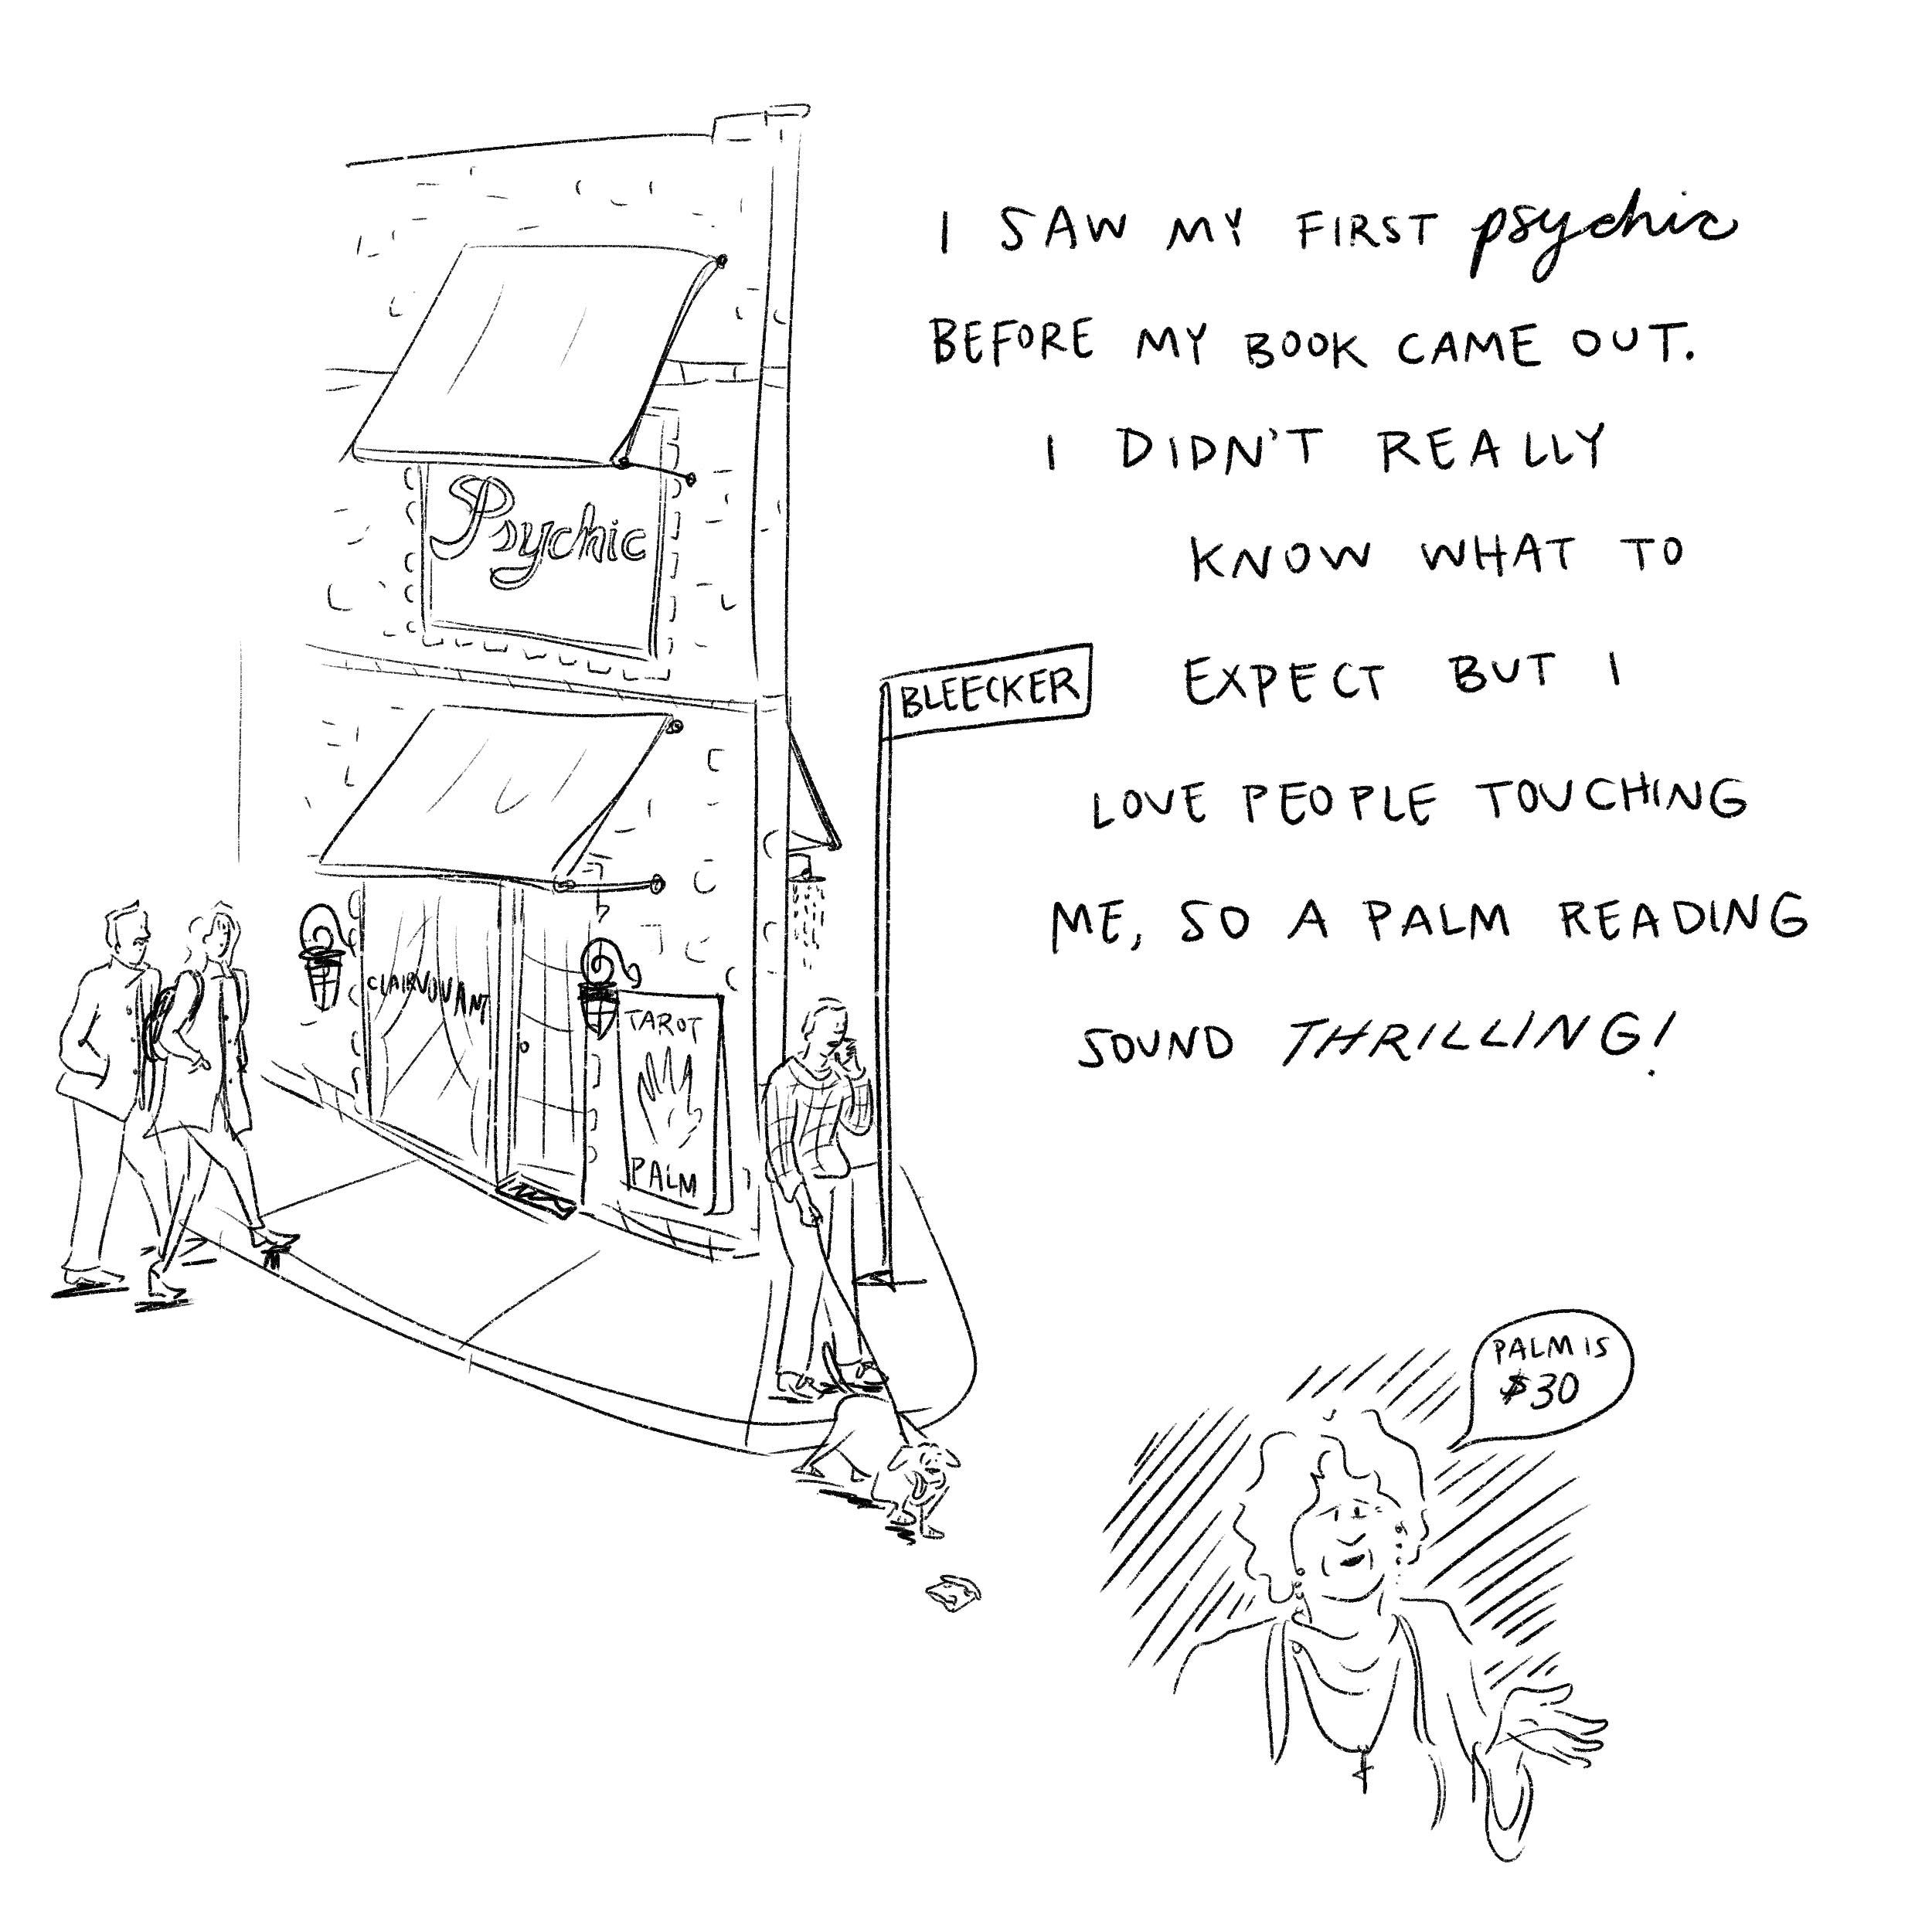 I SAW MY FIRST psychic
BEFORE MY BOOK CAME OUT.
I DIDN'T REALLY
KNOW WHAT TO
EXPECT BUT I
LOVE PEOPLE TOUCHING
ME, SO A PALM READING
SOUND THRILLING!
Psychic
BLEECKER
CLAIRVOYANT
TAROT
PALM
PALM IS
$30